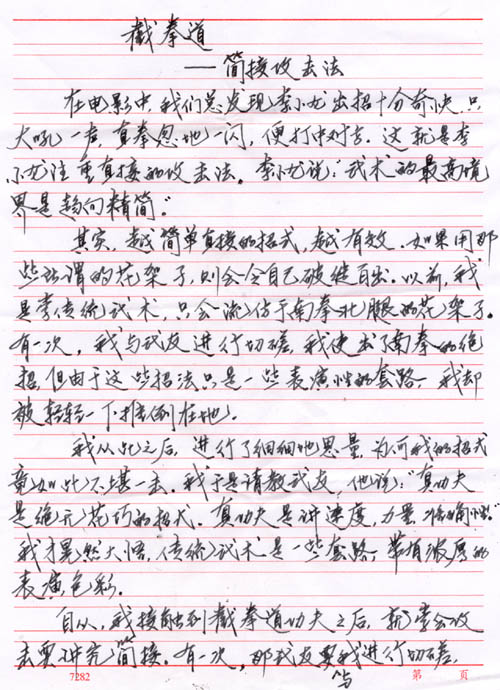 截拳道
——简接攻击法
在电影中,我们总发现李小龙出招十分奇快,只
大吼一声,直拳忽地一闪,便打中对方。这就是李
小龙注重直接的攻击法。李小龙说:"武术的最高境
界是趋向精简。"
其实,越简单直接的招式,越有效。如果用那
些所谓的花架子,则会令自己破绽百出。以前,我
是学传统武术,只会流于南拳北腿的花架子。
有一次,我与武友进行切磋,我使出了南拳的绝
招,但由于这些招法只是一些表演性的套路,我却
被轻轻一下推倒在地。
我从此之后,进行了细细地思量,为何我的招式
竟如此不堪一击。我于是请教武友,他说:"真功夫
是绝无花巧的招式。真功夫是讲速度,力量,准确性。"
我才晃然大悟,传统武术是一些套路,带有浓厚的
表演色彩。
自从,我接触到截拳道功夫之后,就学会攻
击要讲究简接。有一次,那武友与我进行切磋,
7282 第 页